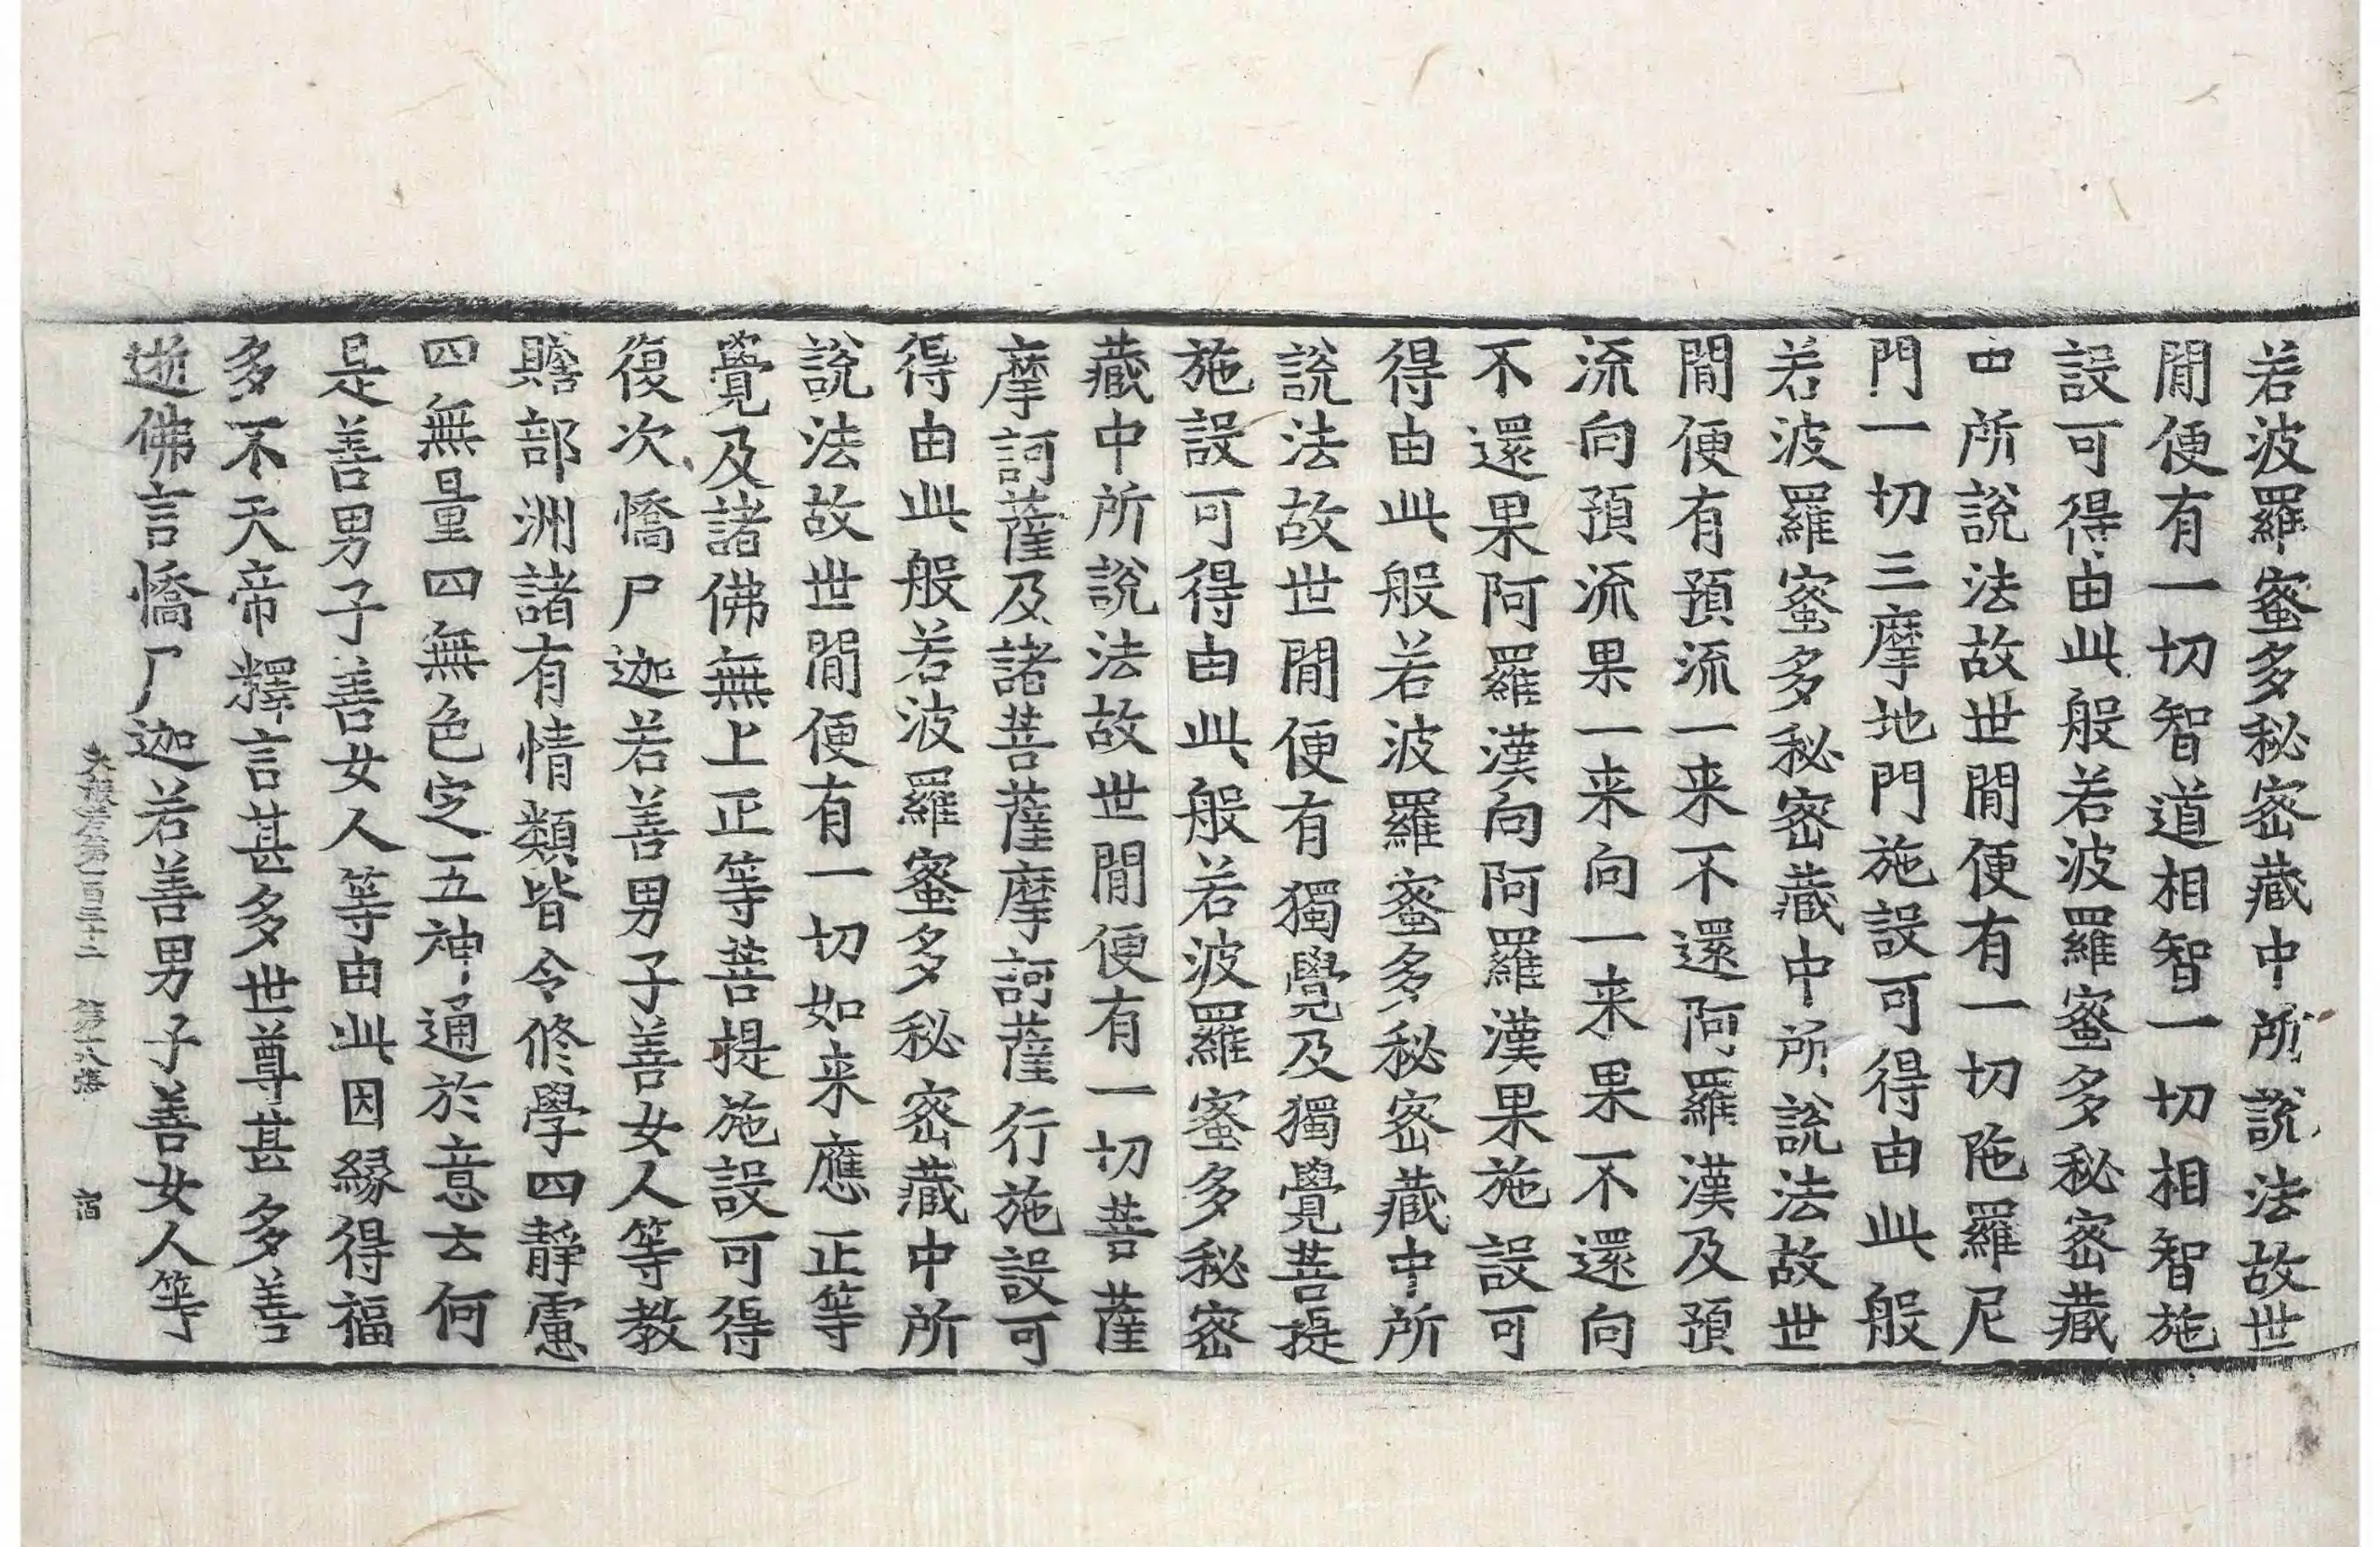 若波羅蜜多秘密藏中所說法故世
閒便有一切智道相智一切相智施
設可得由此般若波羅蜜多秘密藏
中所說法故世閒便有一切陁羅尼
門一切三摩地門施設可得由此般
若波羅蜜多秘密藏中所說法故世
閒便有預流一来不還阿羅漢及預
流向預流果一来向一来果不還向
不還果阿羅漢向阿羅漢果施設可
得由此般若波羅蜜多秘密藏中所
說法故世閒便有獨覺及獨覺菩提
施設可得由此般若波羅蜜多秘密
藏中所說法故世閒便有一切菩薩
摩訶薩及諸菩薩摩訶薩行施設可
得由此般若波羅蜜多秘密藏中所
說法故世閒便有一切如来應正等
覺及諸佛無上正等菩提施設可得
復次憍尸迦若善男子善女人等教
贍部洲諸有情類皆令修學四靜慮
四無量四無色定五神通於意云何
是善男子善女人等由此因緣得福
多不天帝釋言甚多世尊甚多善
逝佛言憍尸迦若善男子善女人等
大般若第一百三十二 第十八張 宿